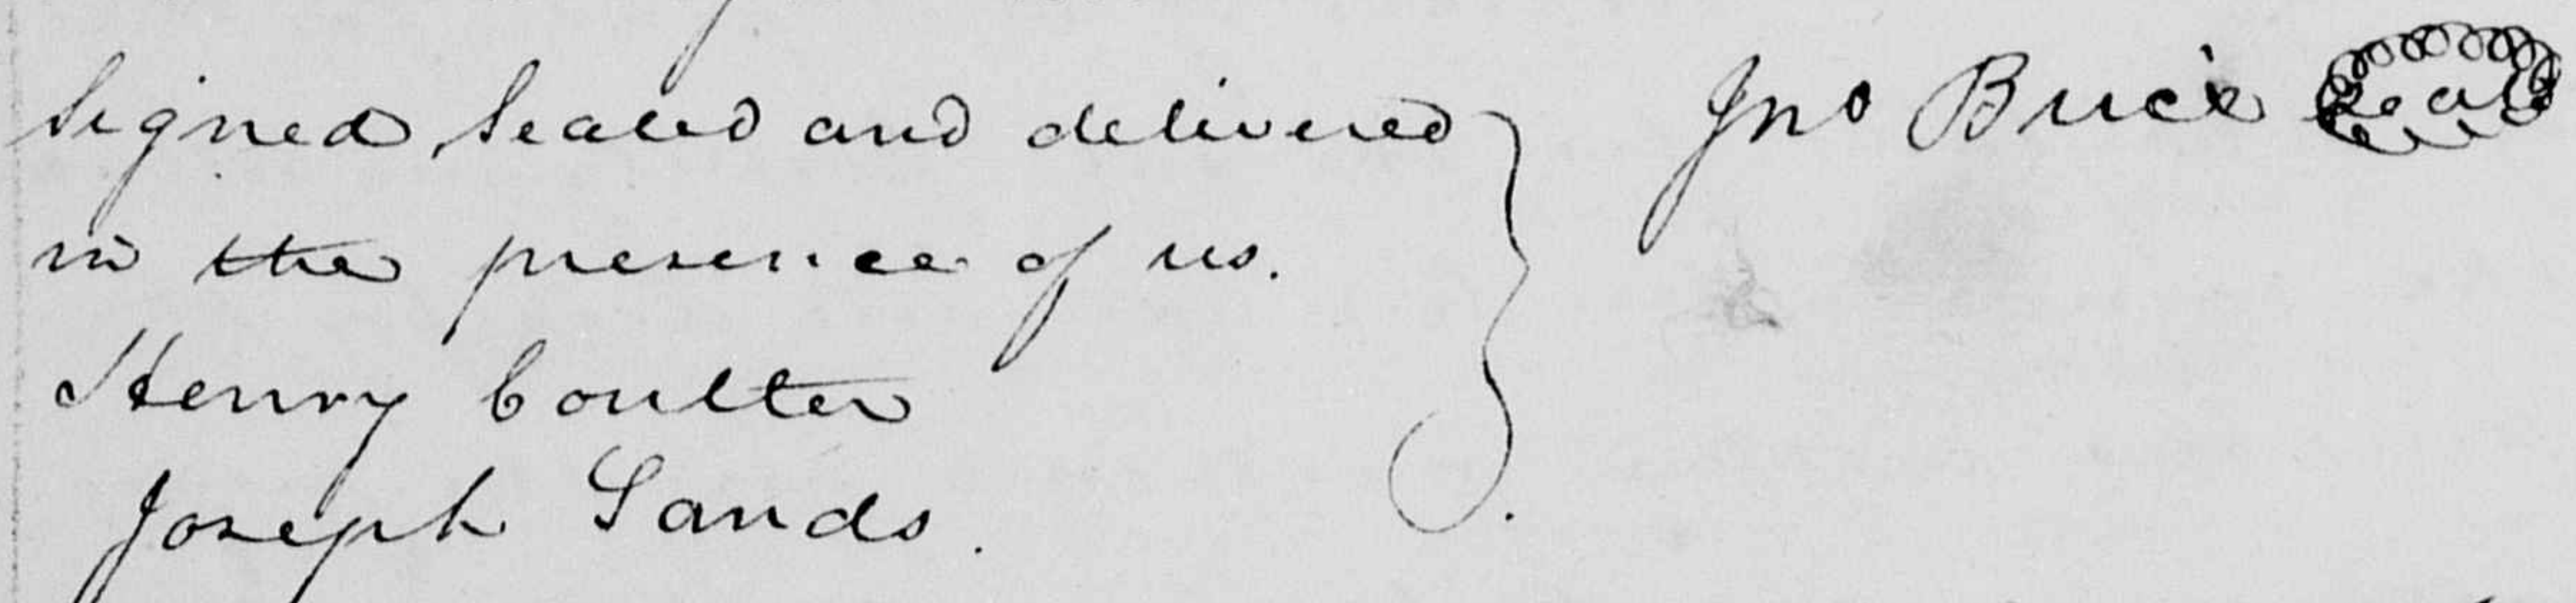 Signed, Sealed and delivered
in the presence of us.
Henry Coulter
Joseph Sands.
Jno Brice Seal